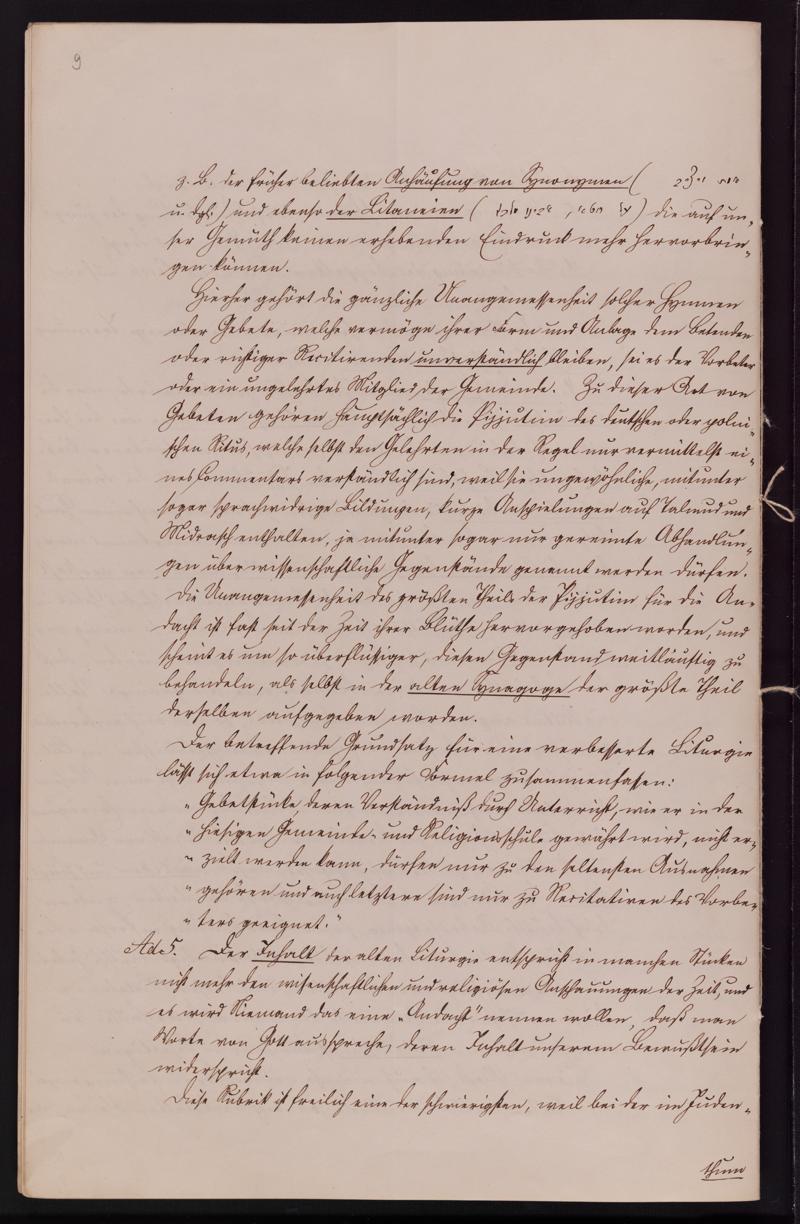 9
z. B. der früher beliebten Anhäufung von Synonymen (
u. dgl.) und ebenso der Litaneien ( ) die auf un-
ser Gemüth keinen erhebenden Eindruck mehr hervorbrin-
gen können.
Hierher gehört die gänzliche Unangemessenheit solcher Hymnen
oder Gebete, welche vermöge ihrer Form und Anlage dem Betenden
oder richtiger Recitirenden unverständlich bleiben, sei es der Vorbeter
oder ein ungelehrtes Mitglied der Gemeinde. Zu dieser Art von
Gebeten gehören hauptsächlich die Pijjutim des deutschen oder polni-
schen Ritus, welche selbst den Gelehrten in der Regel nur vermittelst ei-
nes Commentars verständlich sind, weil sie ungewöhnliche, mitunter
sogar sprachwidrige Bildungen, kurze Anspielungen auf Talmud und
Midrasch enthalten, ja mitunter sogar nur gereimte Abhandlun-
gen über wissenschaftliche Gegenstände genannt werden dürfen.
Die Unangemessenheit des größten Theils der Pijjutim für die An-
dacht ist fast seit der Zeit ihrer Blüthe hervorgehoben worden, und
scheint es um so überflüßiger, diesen Gegenstand weitläuftig zu
behandeln, als selbst in der alten Synagoge der größte Theil
derselben aufgegeben worden.
Der betreffende Grundsatz für eine verbesserte Liturgie
läßt sich etwa in folgender Formel zusammenfassen:
„Gebetstücke, deren Verständniß durch Unterricht, wie er in der
„hiesigen Gemeinde- und Religionsschule gewährt wird, nicht er-
„zielt werden kann, dürfen nur zu den seltensten Ausnahmen
„gehören und auch letztere sind nur zu Recitativen des Vorbe-
„ters geeignet."
Ad 5. Der Inhalt der alten Liturgie entspricht in manchen Stücken
nicht mehr den wissenschaftlichen und religiösen Anschauungen der Zeit, und
es wird Niemand das eine „Andacht" nennen wollen, daß man
Worte von Gott ausspreche, deren Inhalt unserem Bewußtsein
widerspricht.
Diese Rubrik ist freilich eine der schwierigsten, weil bei der im Juden-
thum